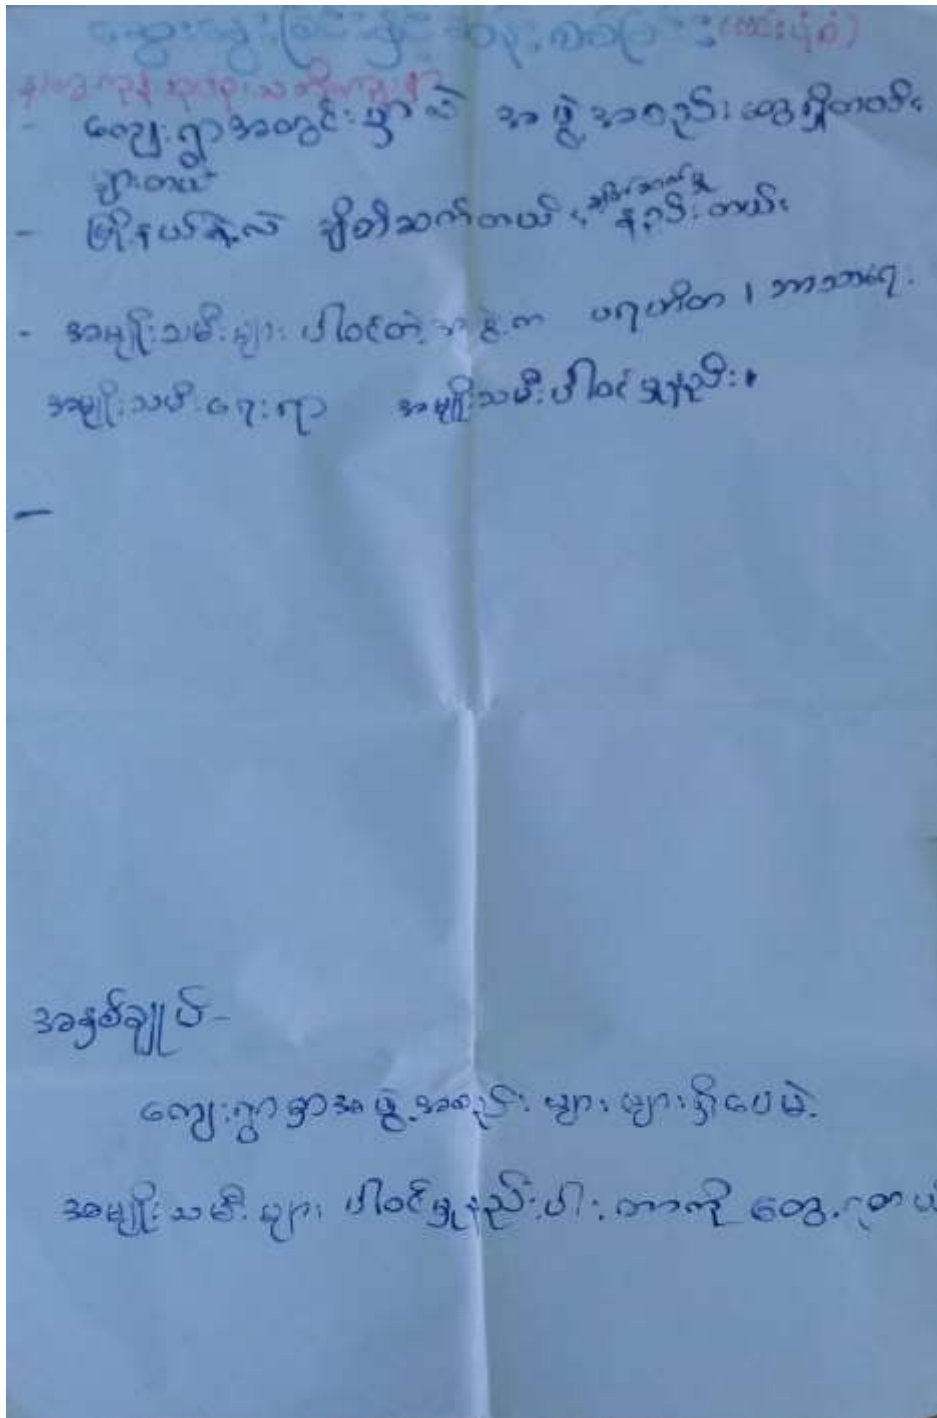 ဆွေးနွေးခြင်းနှင့် ဆန်းစစ်ခြင်း
- ကျေးရွာအတွင်းမှာလဲ အဖွဲ့အစည်းတွေရှိတယ်။
များတယ်
- မြို့နယ်နဲ့လဲ ချိတ်ဆက်တယ်၊ ချိတ်ဆက်မှု နည်းတယ်။
- အမျိုးသမီးများ ပါဝင်တဲ့အဖွဲ့က ပရဟိတ၊ ဘာသာရေး
အမျိုးသမီးရေးရာ အမျိုးသမီးပါဝင်မှုနည်း။
-
အနှစ်ချုပ်-
ကျေးရွာမှာအဖွဲ့အစည်း များများရှိပေမဲ့
အမျိုးသမီးများ ပါဝင်မှုနည်းပါးတာကို တွေ့ရတယ်